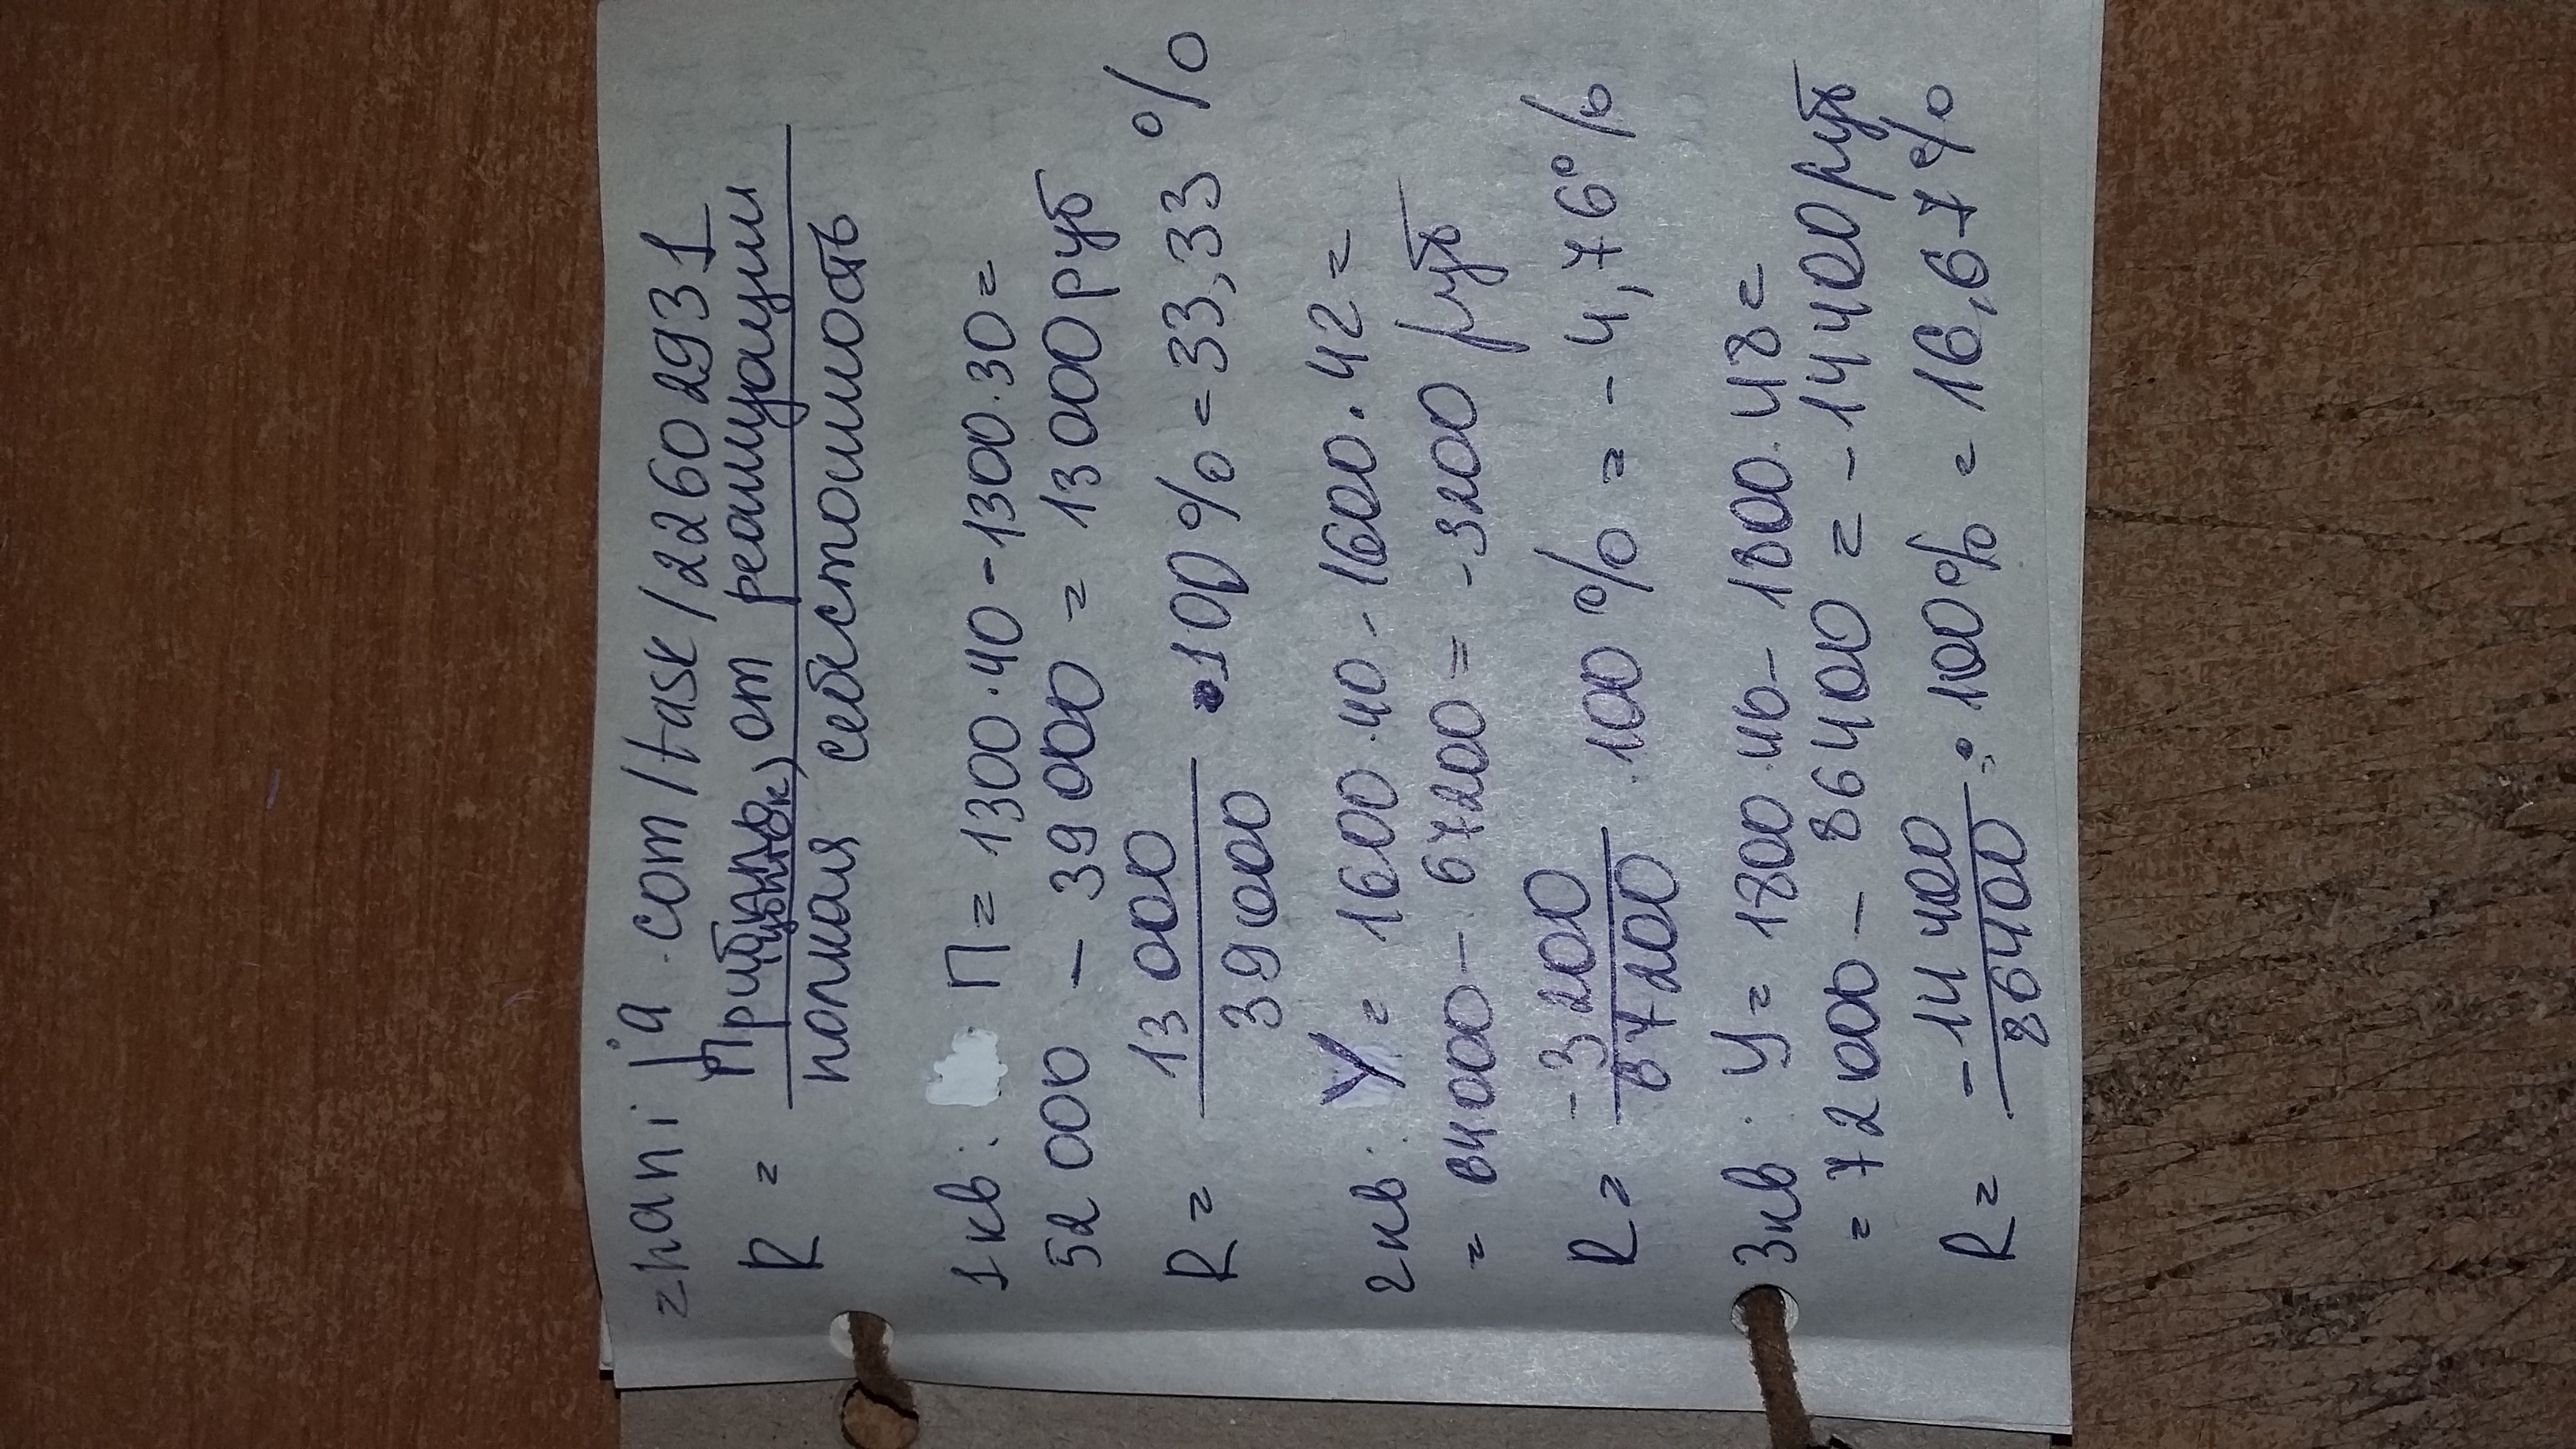 znanija.com/task/22602931
R = Прибыль от реализации
полная себестоимость
1 кв: П = 1300·40-1300·30 =
52 000 - 39 000 = 13 000 руб
R = 13 000 / 39 000 · 100% = 33,33 %
2 кв: У = 1600·40-1600·42 =
= 64000 - 67200 = -3200 руб
R = -3200 / 67200 · 100 % = -4,76 %
3 кв. У = 1800·40 - 1800·48 =
= 72 000 - 86400 = -14400 руб
R = -14 400 / 86400 · 100% = 16,67 %